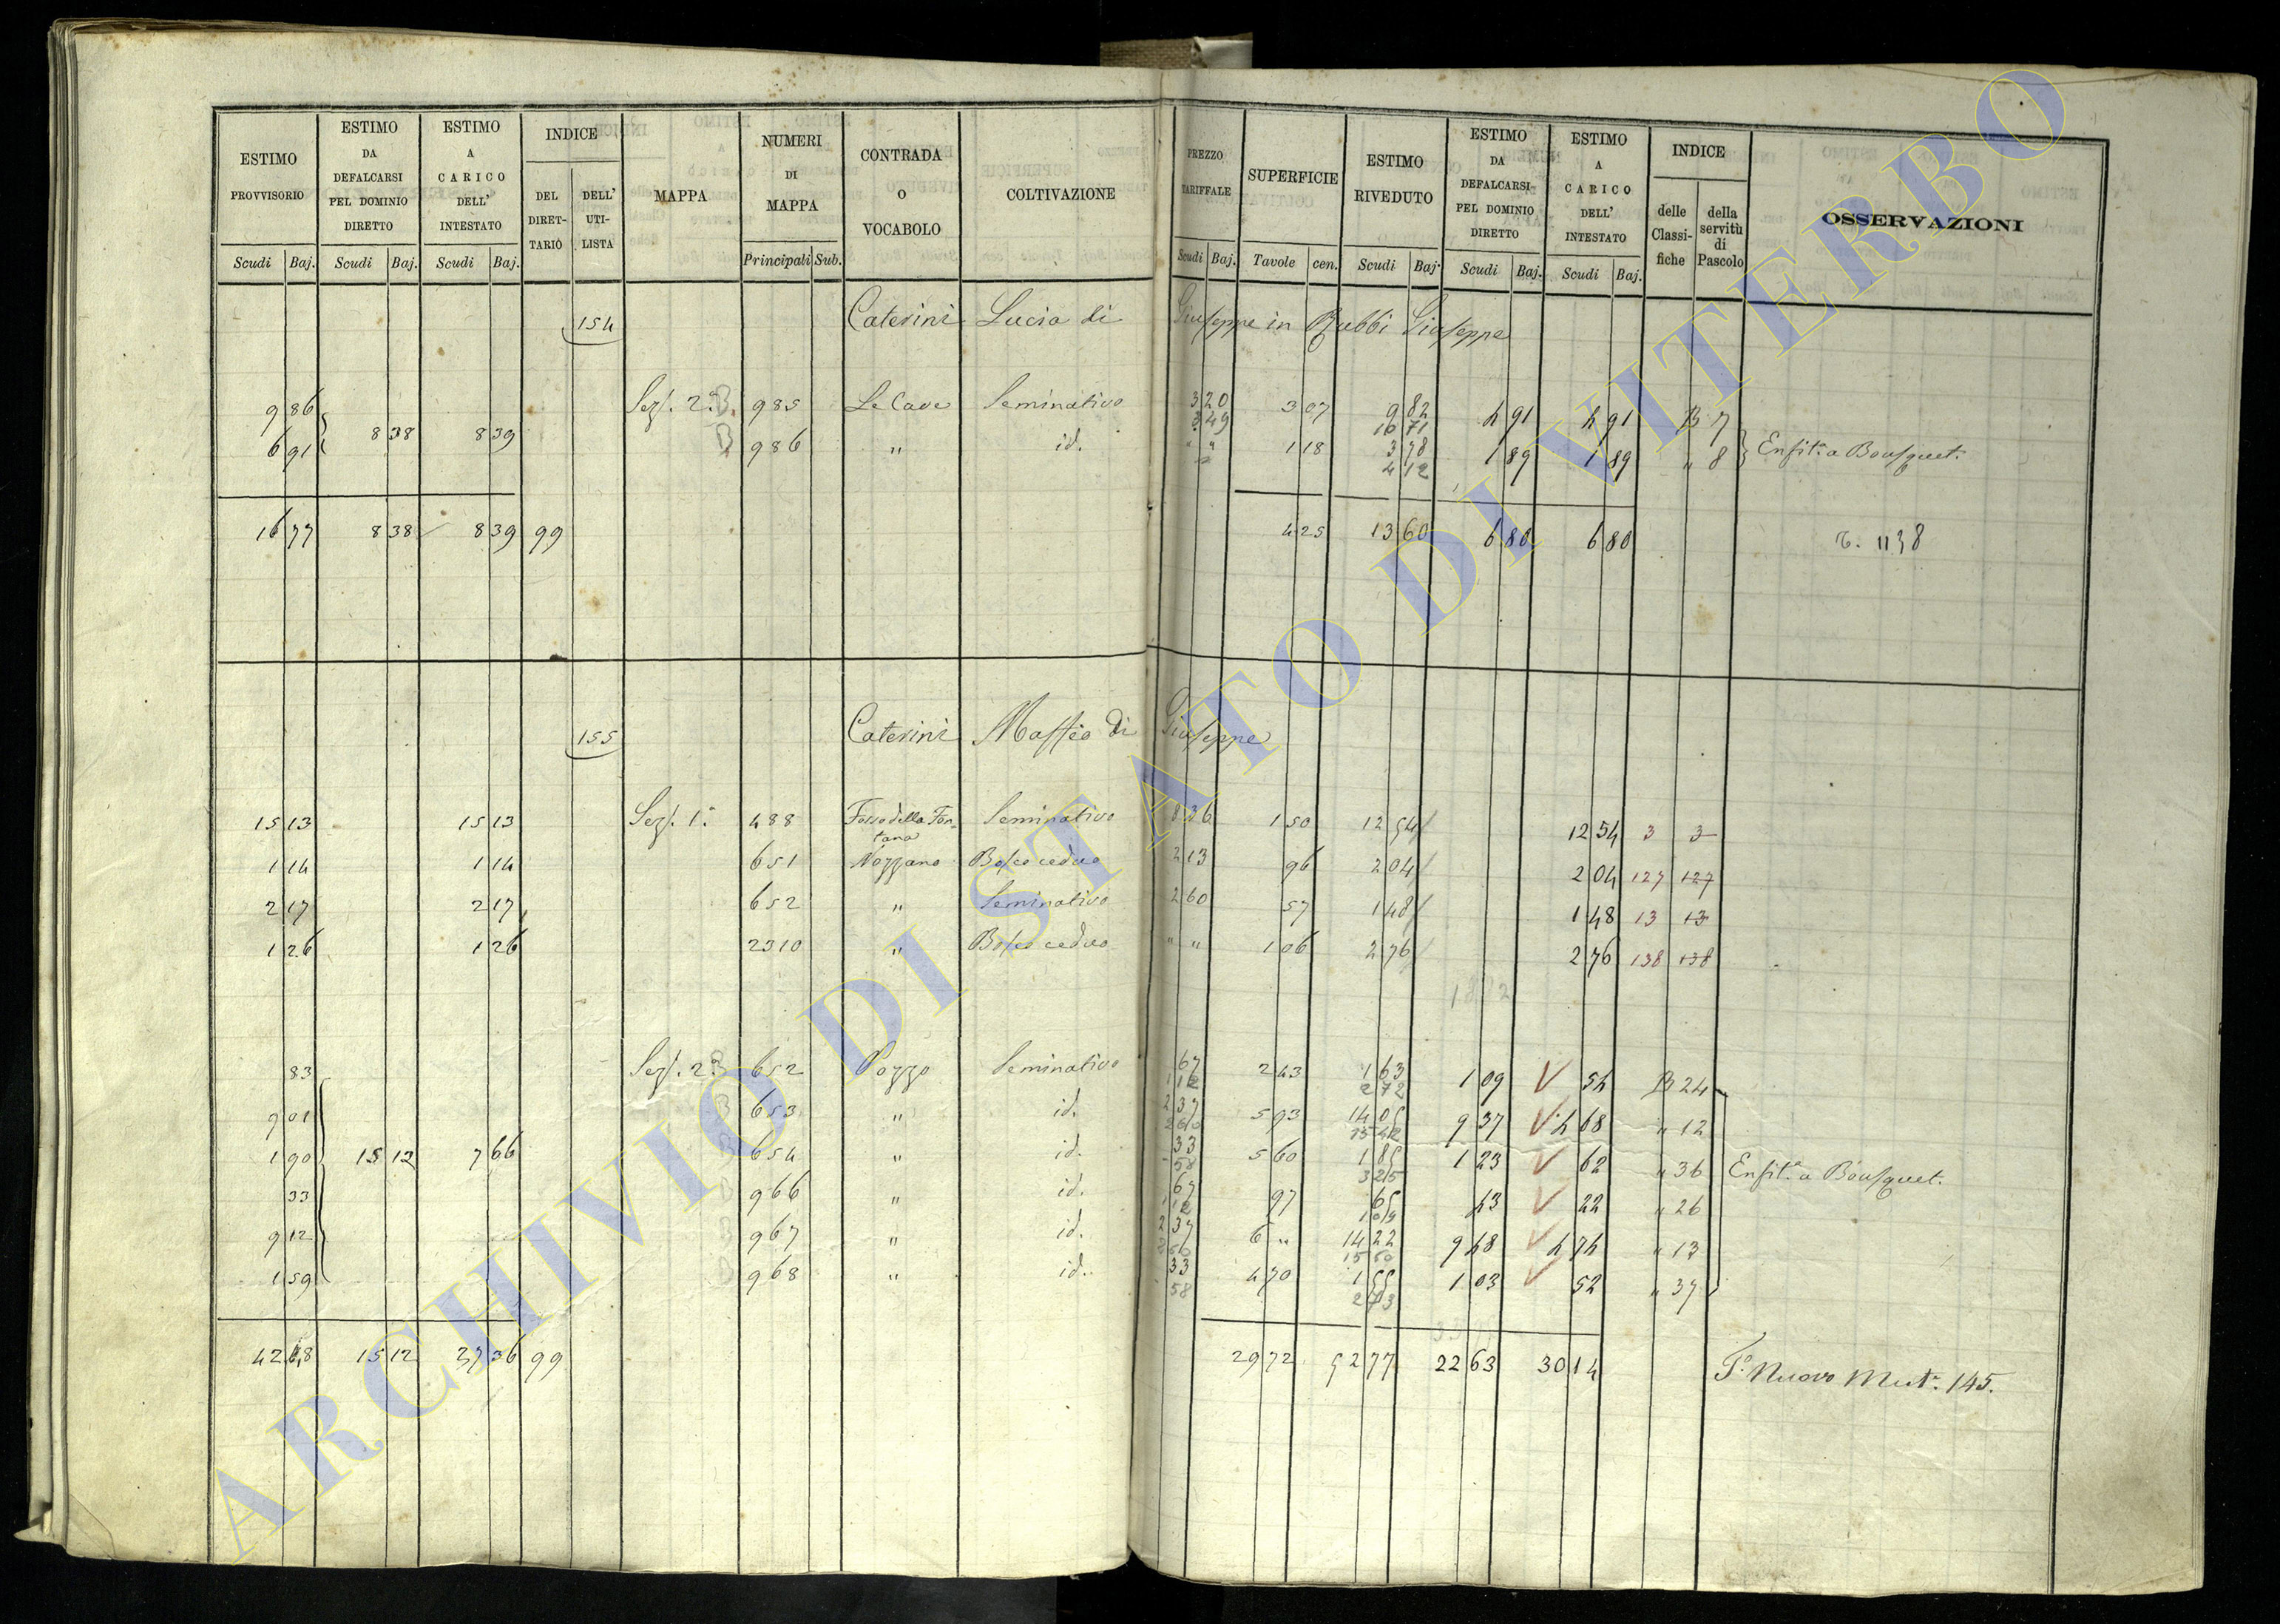 ESTIMO PROVVISORIO | ESTIMO DA DEFALCARSI PEL DOMINIO DIRETTO | ESTIMO A CARICO DELL' INTESTATO | INDICE DEL DIRET-TARIO | DELL' UTI-LISTA | MAPPA | NUMERI DI MAPPA | CONTRADA O VOCABOLO | COLTIVAZIONE | PREZZO TARIFFALE | SUPERFICIE | ESTIMO RIVEDUTO | ESTIMO DA DEFALCARSI PEL DOMINIO DIRETTO | ESTIMO A CARICO DELL' INTESTATO | INDICE delle Classi-fiche | della servitù di Pascolo | OSSERVAZIONI
Scudi | Baj. | Scudi | Baj. | Scudi | Baj. | Principali | Sub. | Scudi | Baj. | Tavole | cen. | Scudi | Baj. | Scudi | Baj. | Scudi | Baj.
154 Caterini Lucia di Giuseppe in Giuseppe
9 86 | Sez. 2a B. | 985 | Le Cave | Seminativo | 3 20 | 3 07 | 9 82 | 4 91 | 4 91 | B 7
8 38 | 8 39 | 3 49 | 10 71
6 91 | B | 986 | " | id. | " " | 1 18 | 3 78 | 1 89 | 1 89 | " 8 | Enfit. a Bousquet.
4 12
16 77 | 8 38 | 8 39 | 99 | 4 25 | 13 60 | 6 80 | 6 80 | 1138
155 Caterini Maffeo di Giuseppe
15 13 | 15 13 | Sez. 1a | 488 | Fosso della Fontana | Seminativo | 8 36 | 1 50 | 12 54 | 12 54 | 3 | 3
1 14 | 1 14 | 651 | Nozzano | Bosco ceduo | 2 13 | 96 | 2 04 | 2 04 | 127 | 127
2 17 | 2 17 | 652 | " | Seminativo | 2 60 | 57 | 1 48 | 1 48 | 13 | 13
1 26 | 1 26 | 2310 | " | Bosco ceduo | " " | 1 06 | 2 76 | 2 76 | 138 | 138
83 | Sez. 2a B | 652 | Pozzo | Seminativo | 67 | 2 43 | 1 63 | 1 09 | V | 54 | B 24
1 12 | 2 72
9 01 | B | 653 | " | id. | 2 37 | 5 93 | 14 05 | 9 37 | V | 4 68 | " 12
2 60 | 15 42
1 90 | 15 12 | 7 66 | 654 | " | id. | 33 | 5 60 | 1 85 | 1 23 | V | 62 | " 36 | Enfit. a Bousquet.
58 | 3 25
33 | 966 | " | id. | 67 | 97 | 65 | 43 | V | 22 | " 26
1 12 | 1 09
9 12 | B | 967 | " | id. | 2 37 | 6 " | 14 22 | 9 48 | V | 4 74 | " 13
15 60
1 59 | B | 968 | " | id. | 33 | 4 70 | 1 55 | 1 03 | V | 52 | " 37
58 | 2 73
42 48 | 15 12 | 27 36 | 99 | 29 72 | 52 77 | 22 63 | 30 14 | Nuovo Mut. 145.
ARCHIVIO DI STATO DI VITERBO